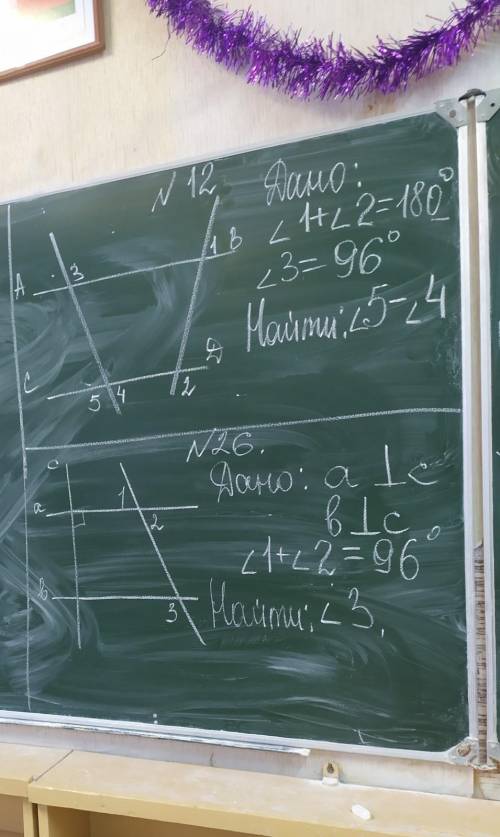 N 12
Дано:
∠1+∠2=180°
∠3=96°
Найти: ∠5-∠4
1 B
3
A
C
Д
5 4
2
N26.
Дано: a ⊥ c
в ⊥ c
∠1+∠2=96°
Найти: ∠3.
c
1
a
2
в
3